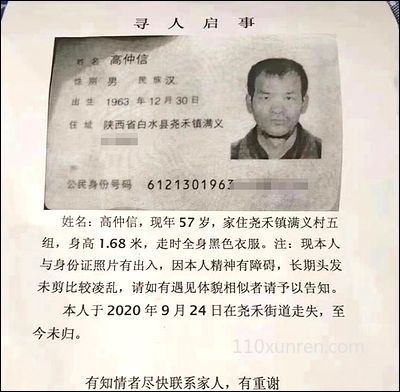 寻人启事
姓名 高仲信
性别 男 民族 汉
出生 1963 年 12 月 30 日
住址 陕西省白水县尧禾镇满义
公民身份号码 6121301963
姓名:高仲信,现年 57 岁,家住尧禾镇满义村五
组,身高 1.68 米,走时全身黑色衣服。注:现本人
与身份证照片有出入,因本人精神有障碍,长期头发
未剪比较凌乱,请如有遇见体貌相似者请予以告知。
本人于 2020 年 9 月 24 日在尧禾街道走失,至
今未归。
110xunren.com
有知情者尽快联系家人,有重谢